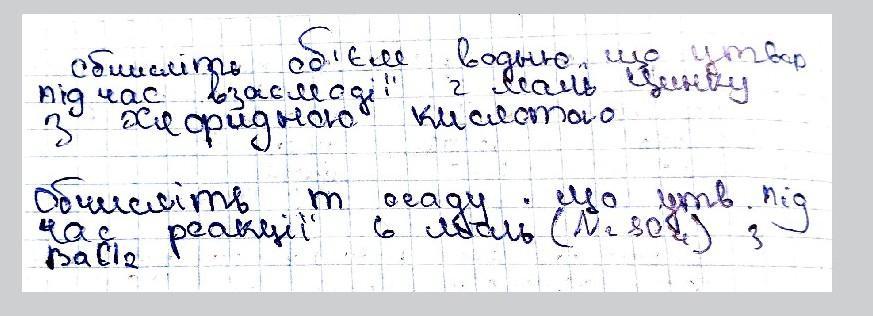 Обчисліть об'єм водню, що утвор
під час взаємодії 2 моль цинку
з хлоридною кислотою
Обчисліть m осаду. що утв. під
час реакції 6 моль (N2SO4) з
BaCl2